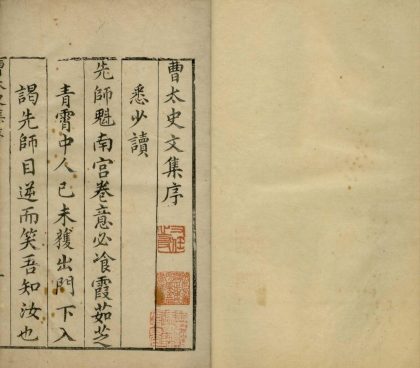 曹太史文集序
悉少讀
先師魁南宮卷意必飡霞茹芝
青霄中人已未獲出門下入
謁先師目逆而笑吾知汝也